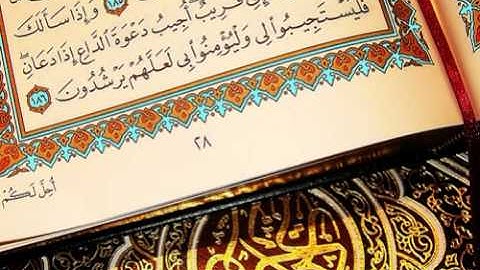 ١٨٥ وَإِذَا سَأَلَكَ
قَرِيبٌ أُجِيبُ دَعْوَةَ ٱلدَّاعِ إِذَا دَعَانِ
فَلْيَسْتَجِيبُوا۟ لِى وَلْيُؤْمِنُوا۟ بِى لَعَلَّهُمْ يَرْشُدُونَ ١٨٦
٢٨
أُحِلَّ لَكُمْ